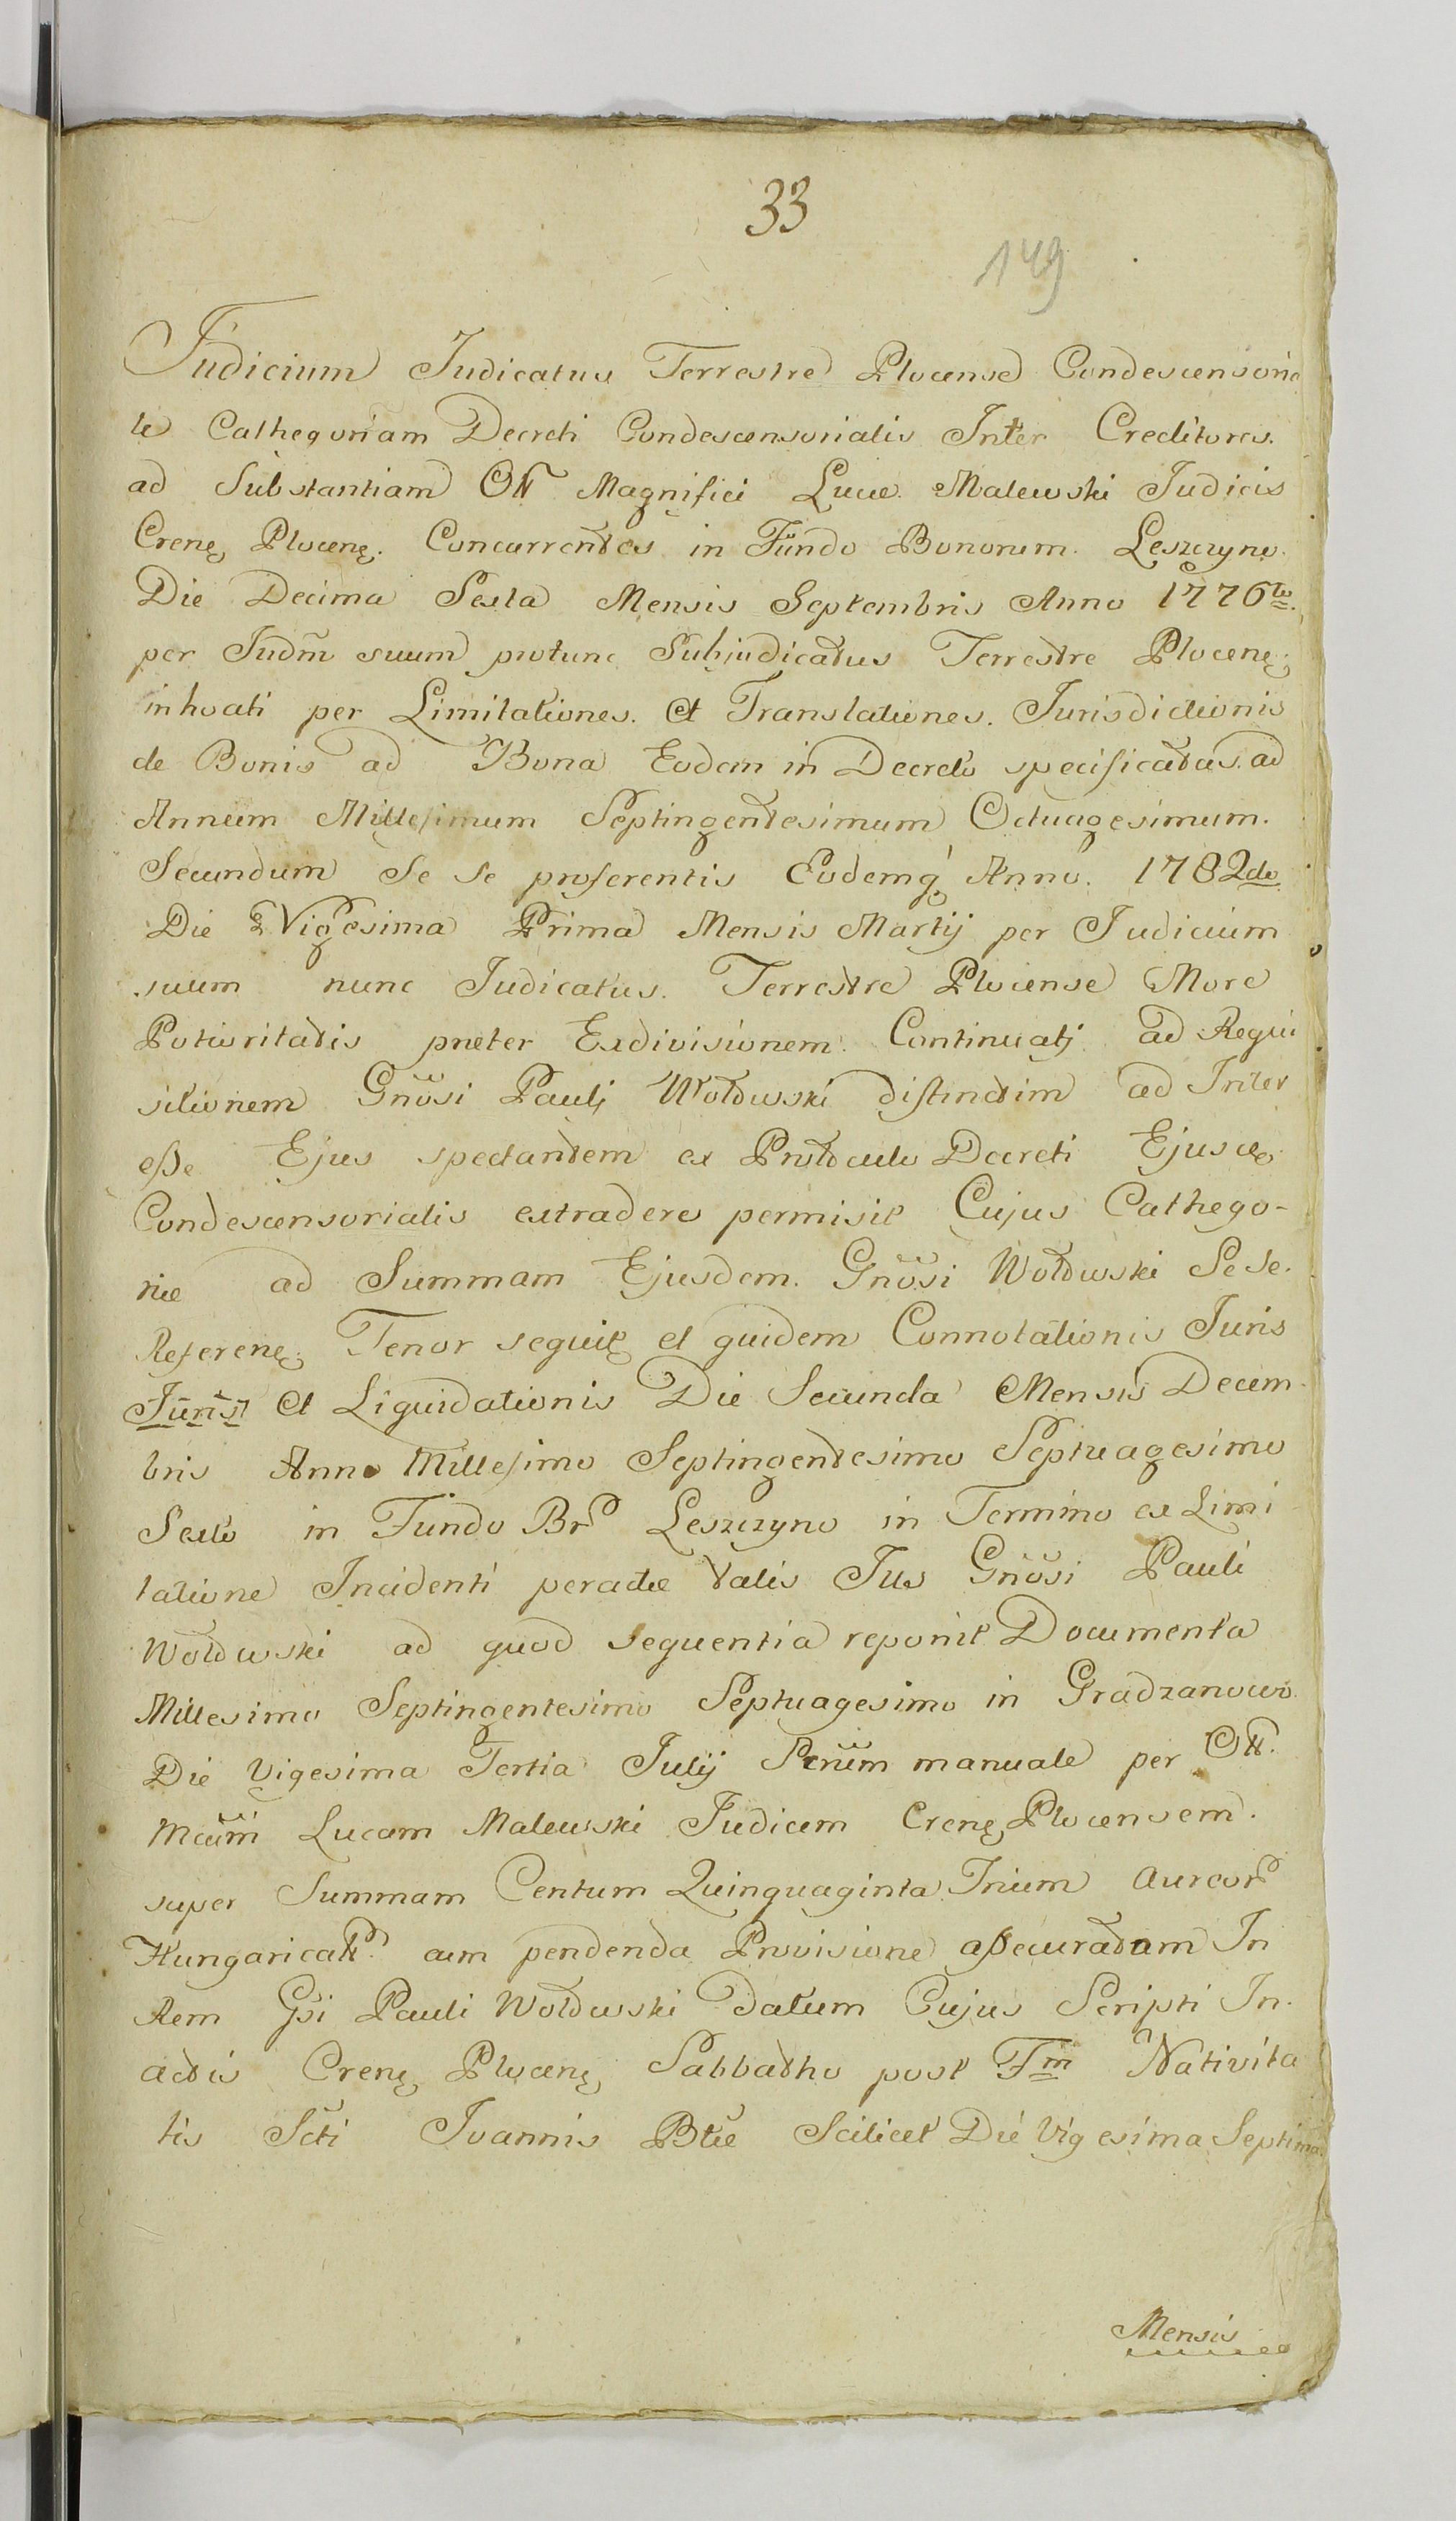 33
149
Judicium Judicatus Terrestre Plocense Condescensoria
le Cathegoriam Decreti Condescensorialis Inter Creditores.
ad Substantiam ON Magnifici Lucæ Malewski Judicis
Crenę Plocenę. Concurrentes in Fundo Bonorum Leszczyno.
Die Decima Sexta Mensis Septembris Anno 1776to.
per Judm̃ suum protunc Subjudicatus Terrestre Plocenę
inhoati per Limitationes. Et Translationes. Jurisdictionis
de Bonis ad Bona Eodem in Decreto specificatas. ad
Annum Millesimum Septingentesimum Octuagesimum.
Secundum Se Se proferentis Eodemq́ Anno. 1782do
Die Vigesima Prima Mensis Martij per Judicium
suum nunc Judicatus. Terrestre Plocense More
Potioritatis præter Exdivisionem. Continuatj ad Requi
sitionem Gnõsi Paulj Wołowski distinctim ad Inter
eße Ejus spectantem ex Prothoculo Decreti Ejusce
Condescensorialis extradere permisit Cujus Cathego-
riæ ad Summam Ejusdem. Gnõsi Wołowski Se se.
Referenę Tenor sequitę et quidem Connotationis Juris
Jũris et Liquidationis Die Secunda Mensis Decem
bris Anno Millesimo Septingentesimo Septuagesimo
Sexto in Fundo Br Leszczyno in Termino ex Limi
tatione Incidenti peractæ talis Jus Gnõsi Pauli
Wołowski ad quod sequentia reponit Documenta
Millesimo Septingentesimo Septuagesimo in Gradzanowo
Die Vigesima Tertia Julij Scrũm manuale per ON.
Mcũm Lucam Malewski Judicem Crenę Plocensem.
super Summam Centum Quinquaginta Trium Aureor
Hungaricalr cum pendenda Provisione aßecuratam In
Rem Gsi Pauli Wołowski Datum Cujus Scripti In.
Actis Crenę Plocenę Sabbatho post Fm Nativita
tis Scti Joannis Btæ Scilicet Die Vigesima Septima
Mensis